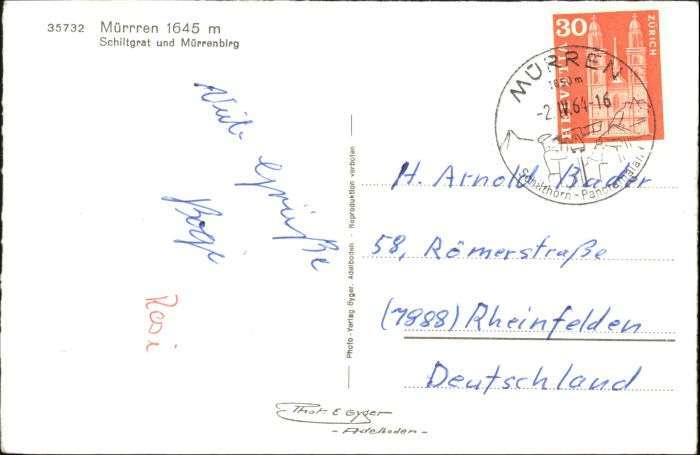 35732 Mürrren 1645 m
Schiltgrat und Mürrenbirg
30
HELVETIA
ZÜRICH
MÜRREN
1650 m
-2.IV.64-16
Schilthorn-Panorama
Viele Grüße
Rosi
Rosi
H. Arnold Bader
58, Römerstraße
(7888) Rheinfelden
Deutschland
Photo-Verlag Gyger, Adelboden - Reproduktion verboten
Phot. E. Gyger
- Adelboden -